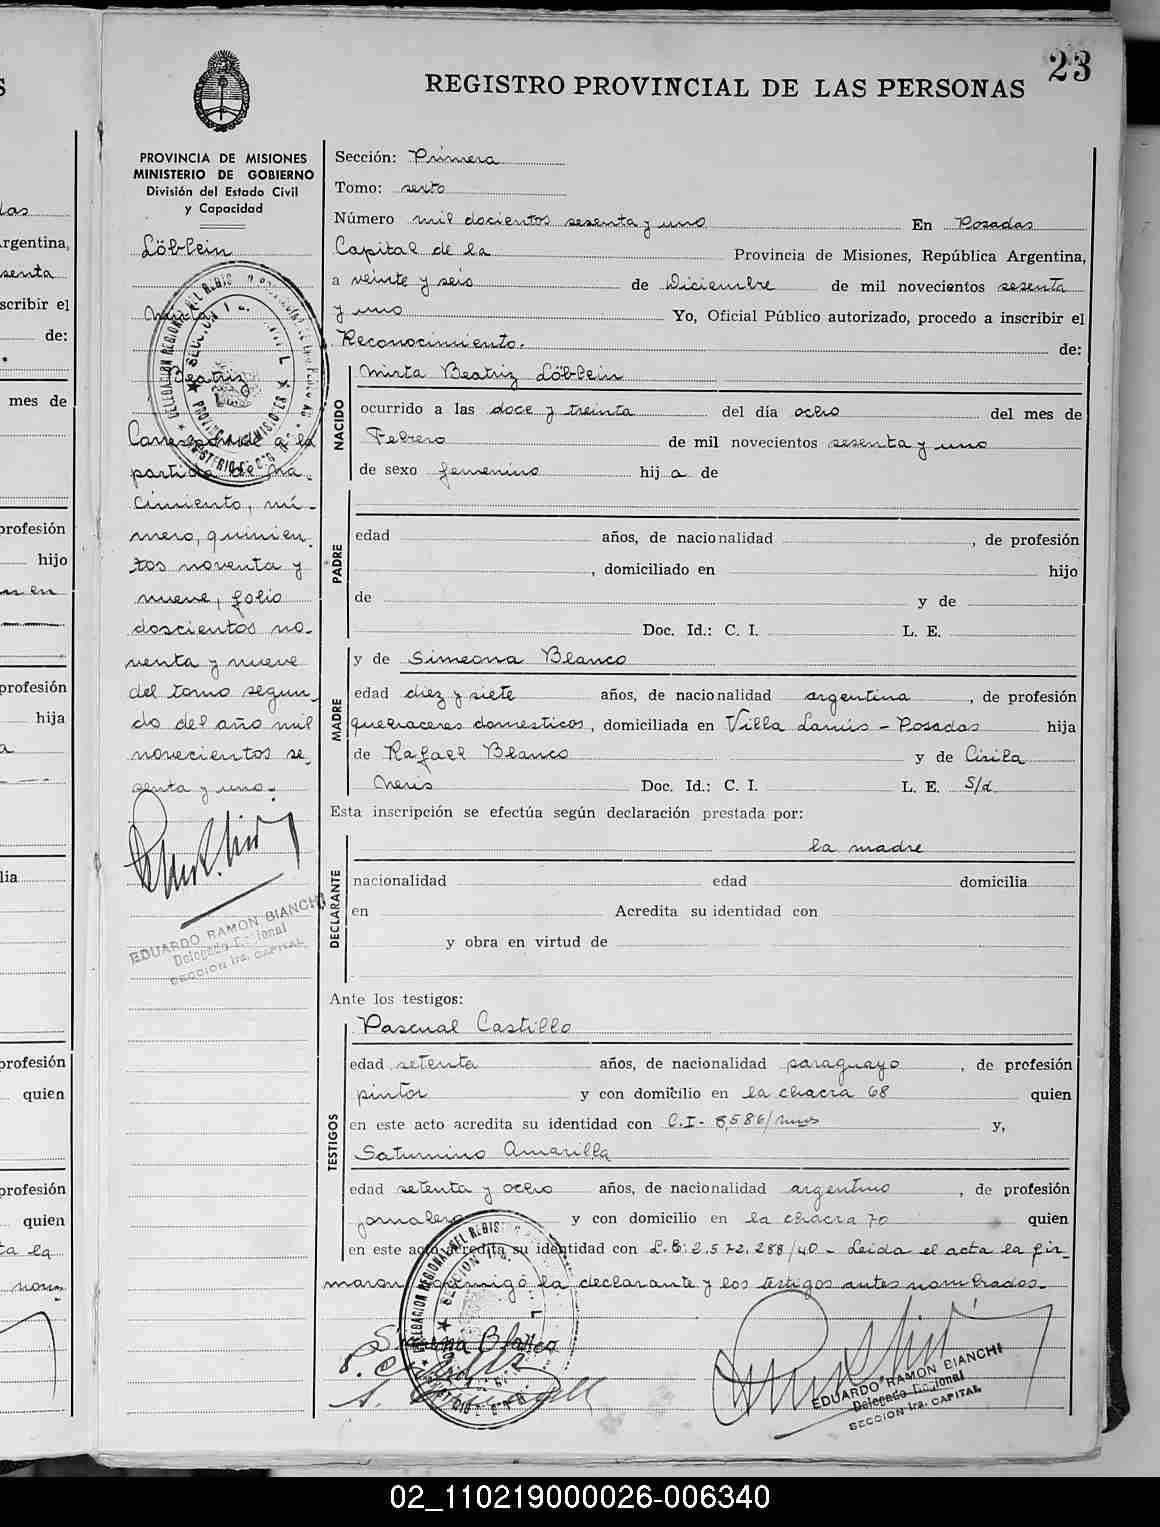 23
REGISTRO PROVINCIAL DE LAS PERSONAS
PROVINCIA DE MISIONES
MINISTERIO DE GOBIERNO
División del Estado Civil
y Capacidad
Löblein
Mirta
Beatriz
Corresponde a la
partida de na-
cimiento, nú-
mero, quinien-
tos noventa y
nueve, folio
doscientos no-
venta y nueve
del tomo segun-
do del año mil
novecientos se-
senta y uno.
EDUARDO RAMON BIANCHI
Delegado Regional
SECCION 1ra. CAPITAL
Sección: Primera
Tomo: sexto
Número mil docientos sesenta y uno En Posadas
Capital de la Provincia de Misiones, República Argentina,
a veinte y seis de Diciembre de mil novecientos sesenta
y uno Yo, Oficial Público autorizado, procedo a inscribir el
Reconocimiento. de:
NACIDO
Mirta Beatriz Löblein
ocurrido a las doce y treinta del día ocho del mes de
Febrero de mil novecientos sesenta y uno
de sexo femenino hij a de
PADRE
edad años, de nacionalidad , de profesión
, domiciliado en hijo
de y de
Doc. Id.: C. I. L. E.
MADRE
y de Simeona Blanco
edad diez y siete años, de nacionalidad argentina , de profesión
quehaceres domesticos, domiciliada en Villa Lanús - Posadas hija
de Rafael Blanco y de Cirila
Neris Doc. Id.: C. I. L. E. S/d.
Esta inscripción se efectúa según declaración prestada por:
DECLARANTE
la madre
nacionalidad edad domicilia
en Acredita su identidad con
y obra en virtud de
Ante los testigos:
TESTIGOS
Pascual Castillo
edad setenta años, de nacionalidad paraguayo , de profesión
pintor y con domicilio en la chacra 68 quien
en este acto acredita su identidad con C.I- 8,586/ y,
Saturnino Amarilla
edad setenta y ocho años, de nacionalidad argentino , de profesión
jornalero y con domicilio en la chacra 70 quien
en este acto acredita su identidad con L.E. 2,572,288/40 - Leida el acta la fir-
maron conmigo la declarante y los testigos antes nombrados.-
Simeona Blanco
EDUARDO RAMON BIANCHI
Delegado Regional
SECCION 1ra. CAPITAL
02_110219000026-006340